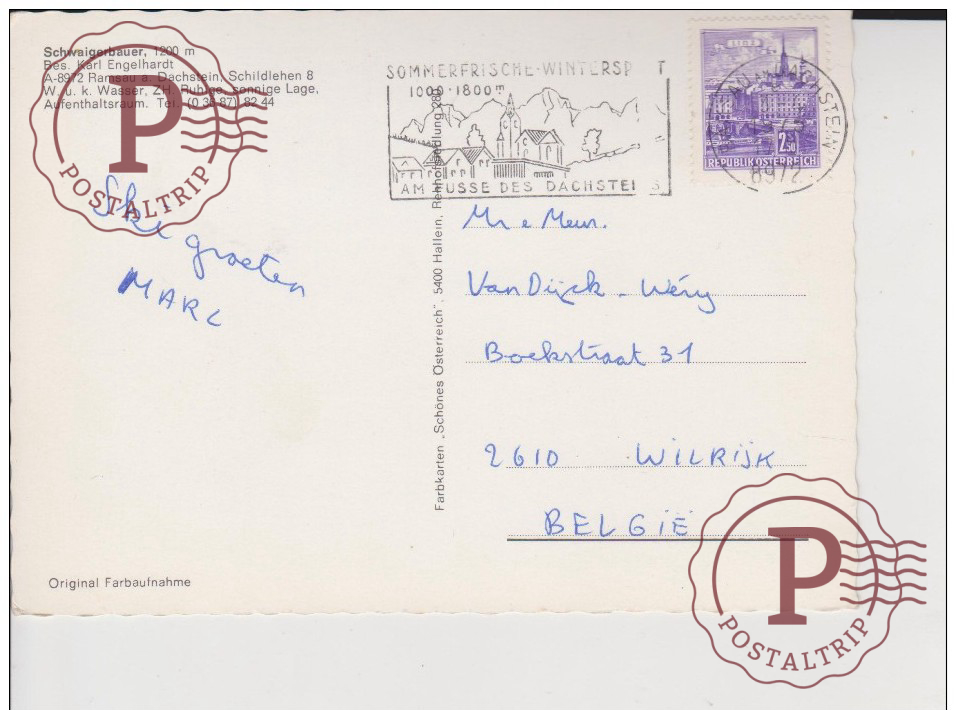 Schwaigerbauer, 1200 m
Bes. Karl Engelhardt
A-8972 Ramsau a. Dachstein, Schildlehen 8
W. u. k. Wasser, ZH, Ruhige, sonnige Lage,
Aufenthaltsraum. Tel. (0 36 87) 82 44
P
POSTALTRIP
groeten
MARC
Original Farbaufnahme
Farbkarten „Schönes Österreich", 5400 Hallein,
SOMMERFRISCHE-WINTERSP T
1000-1800
AM FUSSE DES DACHSTEI S
LINZ
2.50
REPUBLIK ÖSTERREICH
8972
Mr e Mevr.
Van Dijck - Wéry
Boekstraat 31
2610 WILRIJK
BELGIË
P
POSTALTRIP